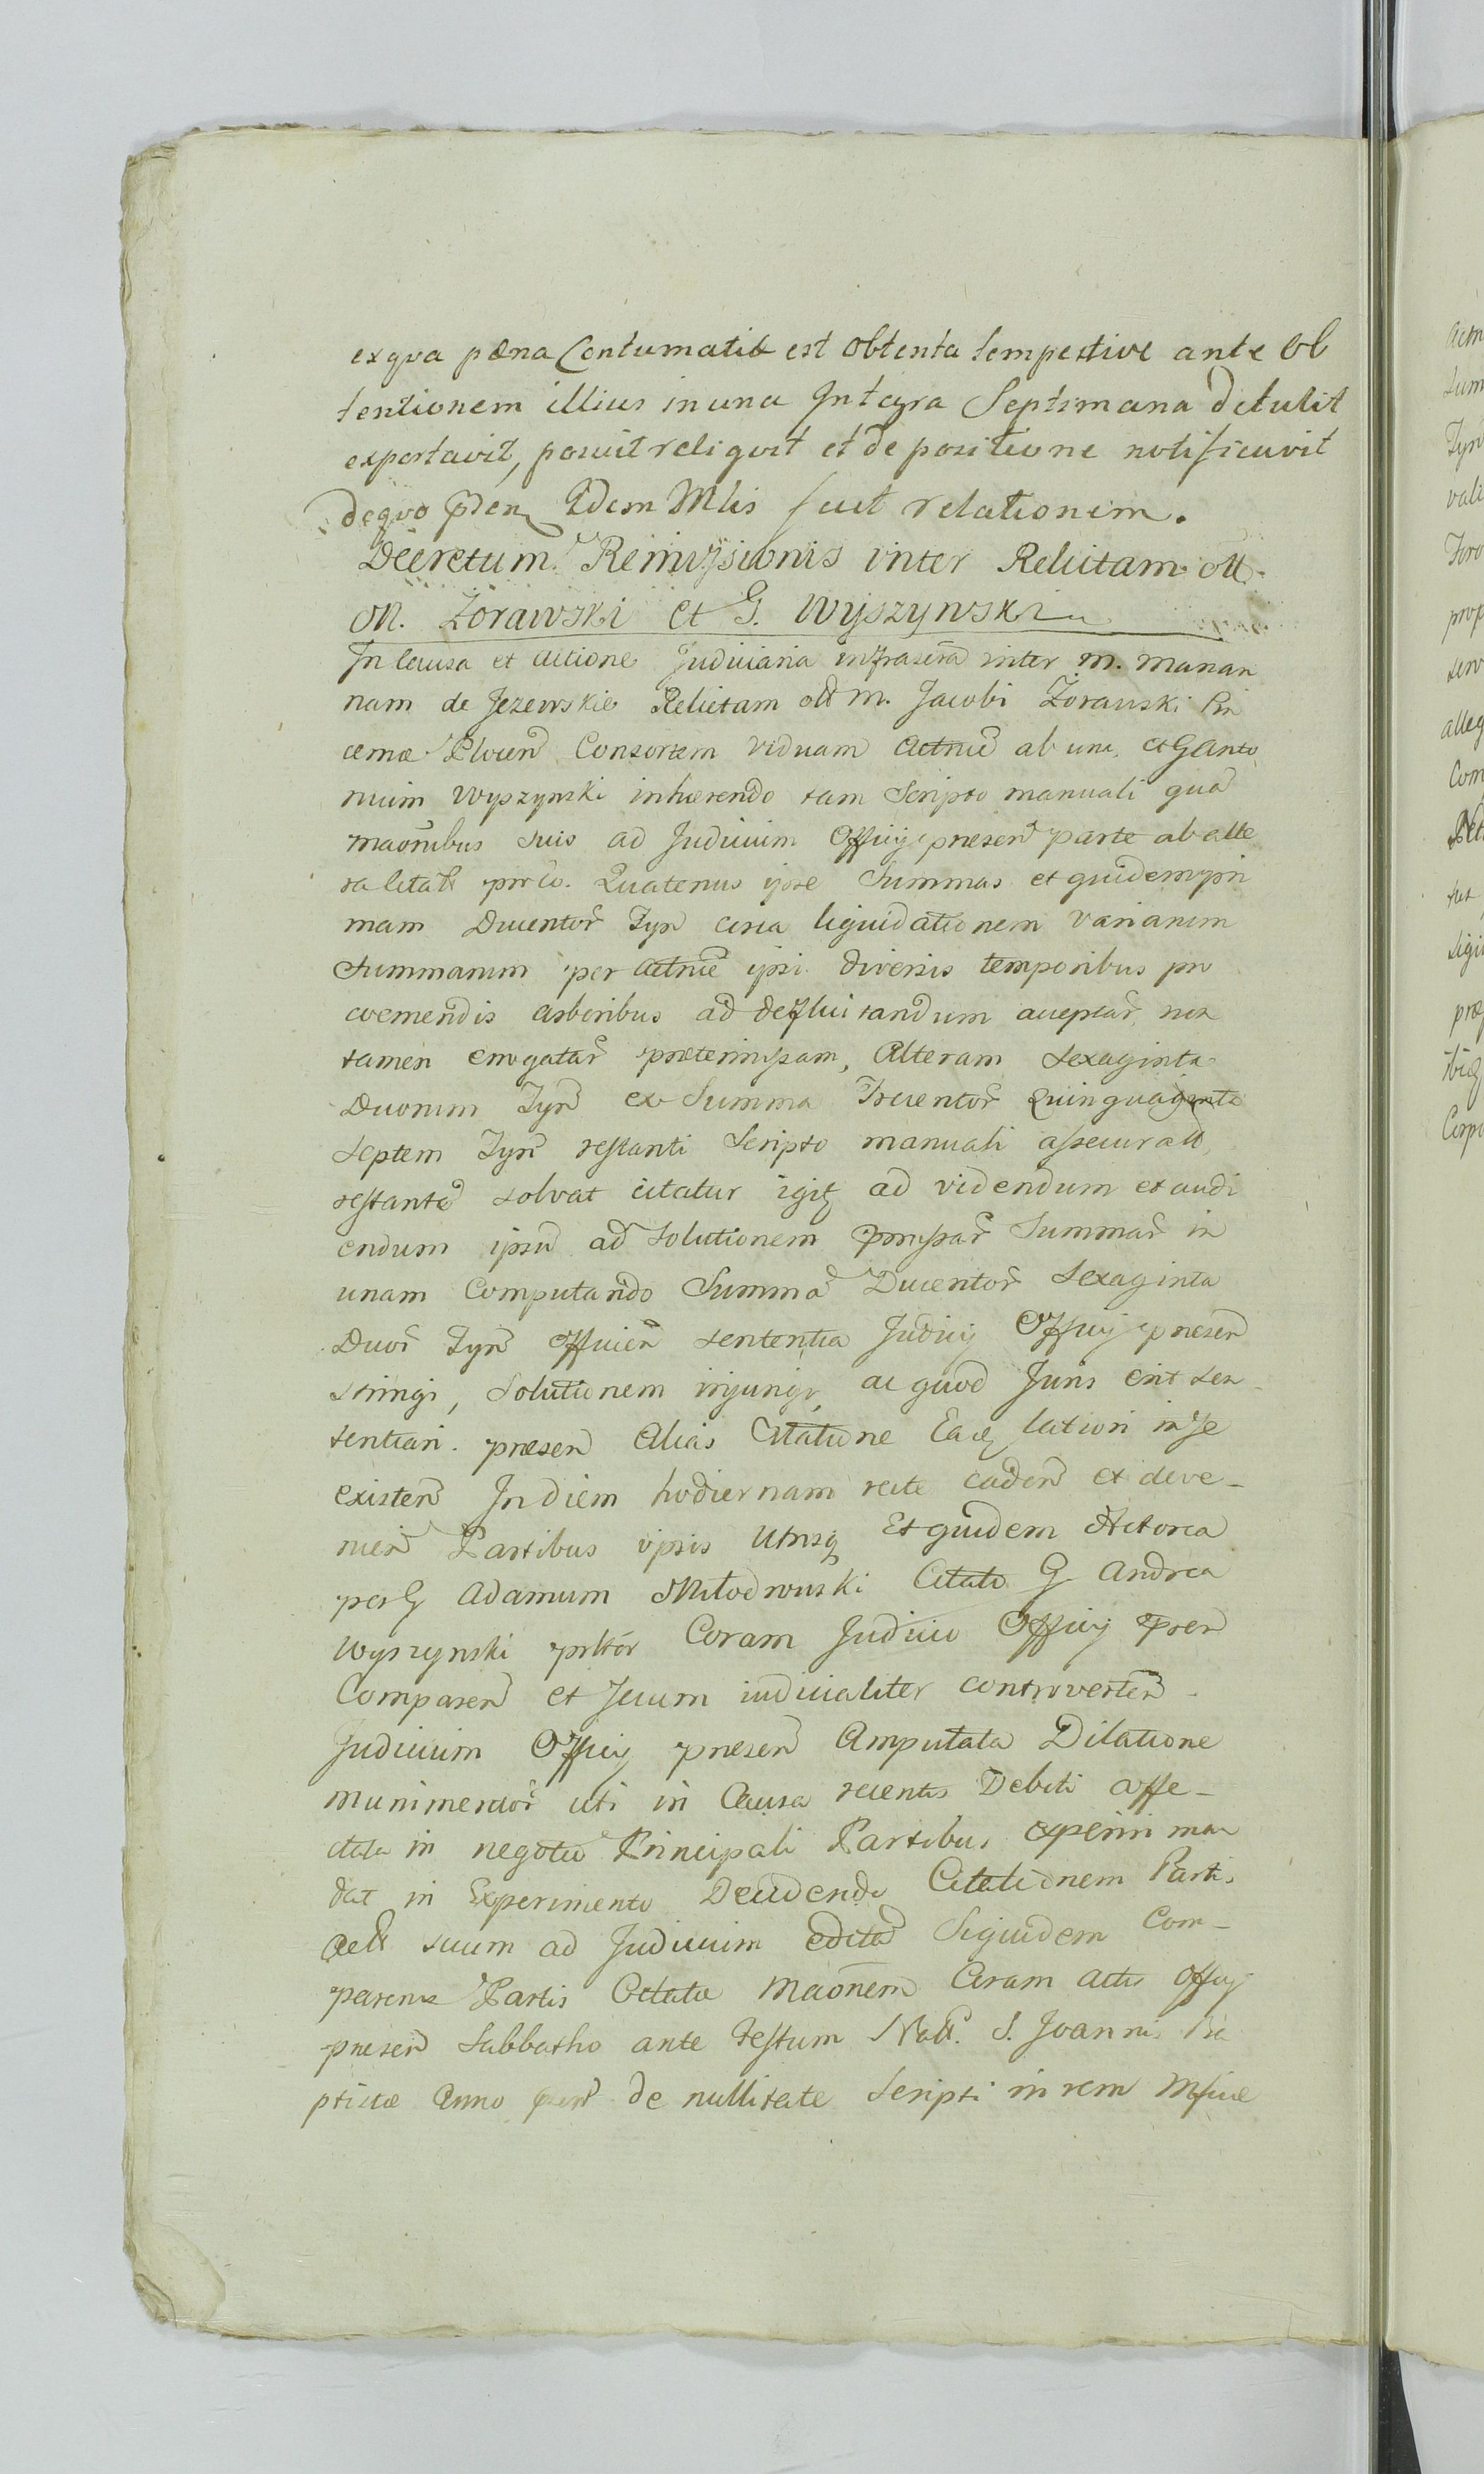 ex qva pæna Contumatiæ est obtenta tempestive ante ob
tentionem illius in una Integra Septimana detulit
exportavit, posuit reliqvit et de positione notificavit
de qvo pden Idem Mlis fecit relationem.
Decretum Remissionis inter Relictam oll
M. Zorawski et G. Wyszynski
In Causa et actione Judiciaria infrascra inter M. Marian
nam de Jezewskie Relictam oll M. Jacobi Zorawski Pin
cernæ Plocen Consortem viduam Actrice ab una, et G Anto
nium Wyszynski inhærendo tam Scripto manuali qua
maonibus suis ad Judicium Officij præsen parte ab alte
ra litatt pro eo. Quatenus ipse Summas et quidem pri
mam Ducentor Tyn circa liquidationem variarum
Summarum per Actrice ipsi diversis temporibus pro
coemendis arboribus ad defluitandum acceptar, non
tamen erogatar prætermissam, Alteram Sexaginta
Duorum Tyn ex Summa Trecentor Quinquaginta
Septem Tyn restanti Scripto manuali assecuratt,
restante solvat citatur igitq ad videndum et audi
endum ipsu ad Solutionem præmissar Summar in
unam Computando Summa Ducentor Sexaginta
Duor Tyn efficien sententia Judicij Officij præsen
stringi, Solutionem injungi, ac quod Juris erit sen
tentiari. præsen Alias Citatione Eaq latiori in se
existen In diem hodiernam recte caden et deve-
nien Partibus ipsis Utrisq Et quidem Actorea
per G Adamum Młodzowski Citata G Andrea
Wyszynski prktor Coram Judicio Officij præn
Comparen et secum iudicialiter controverten.
Judicium Officij præsen Amputata Dilatione
munimentor uti in Causa recentis Debiti affe-
ctata in negotio Principali Partibus experiri man
dat in Experimento Decidendo Citationem Partis
Actt suum ad Judicium edita Siquidem Com-
parens Partis Citatæ Maonem Coram actis Officij
præsen Sabbatho ante Festum Natt. S. Joannis Ba
ptistæ Anno præn de nullitate Scripti in rem